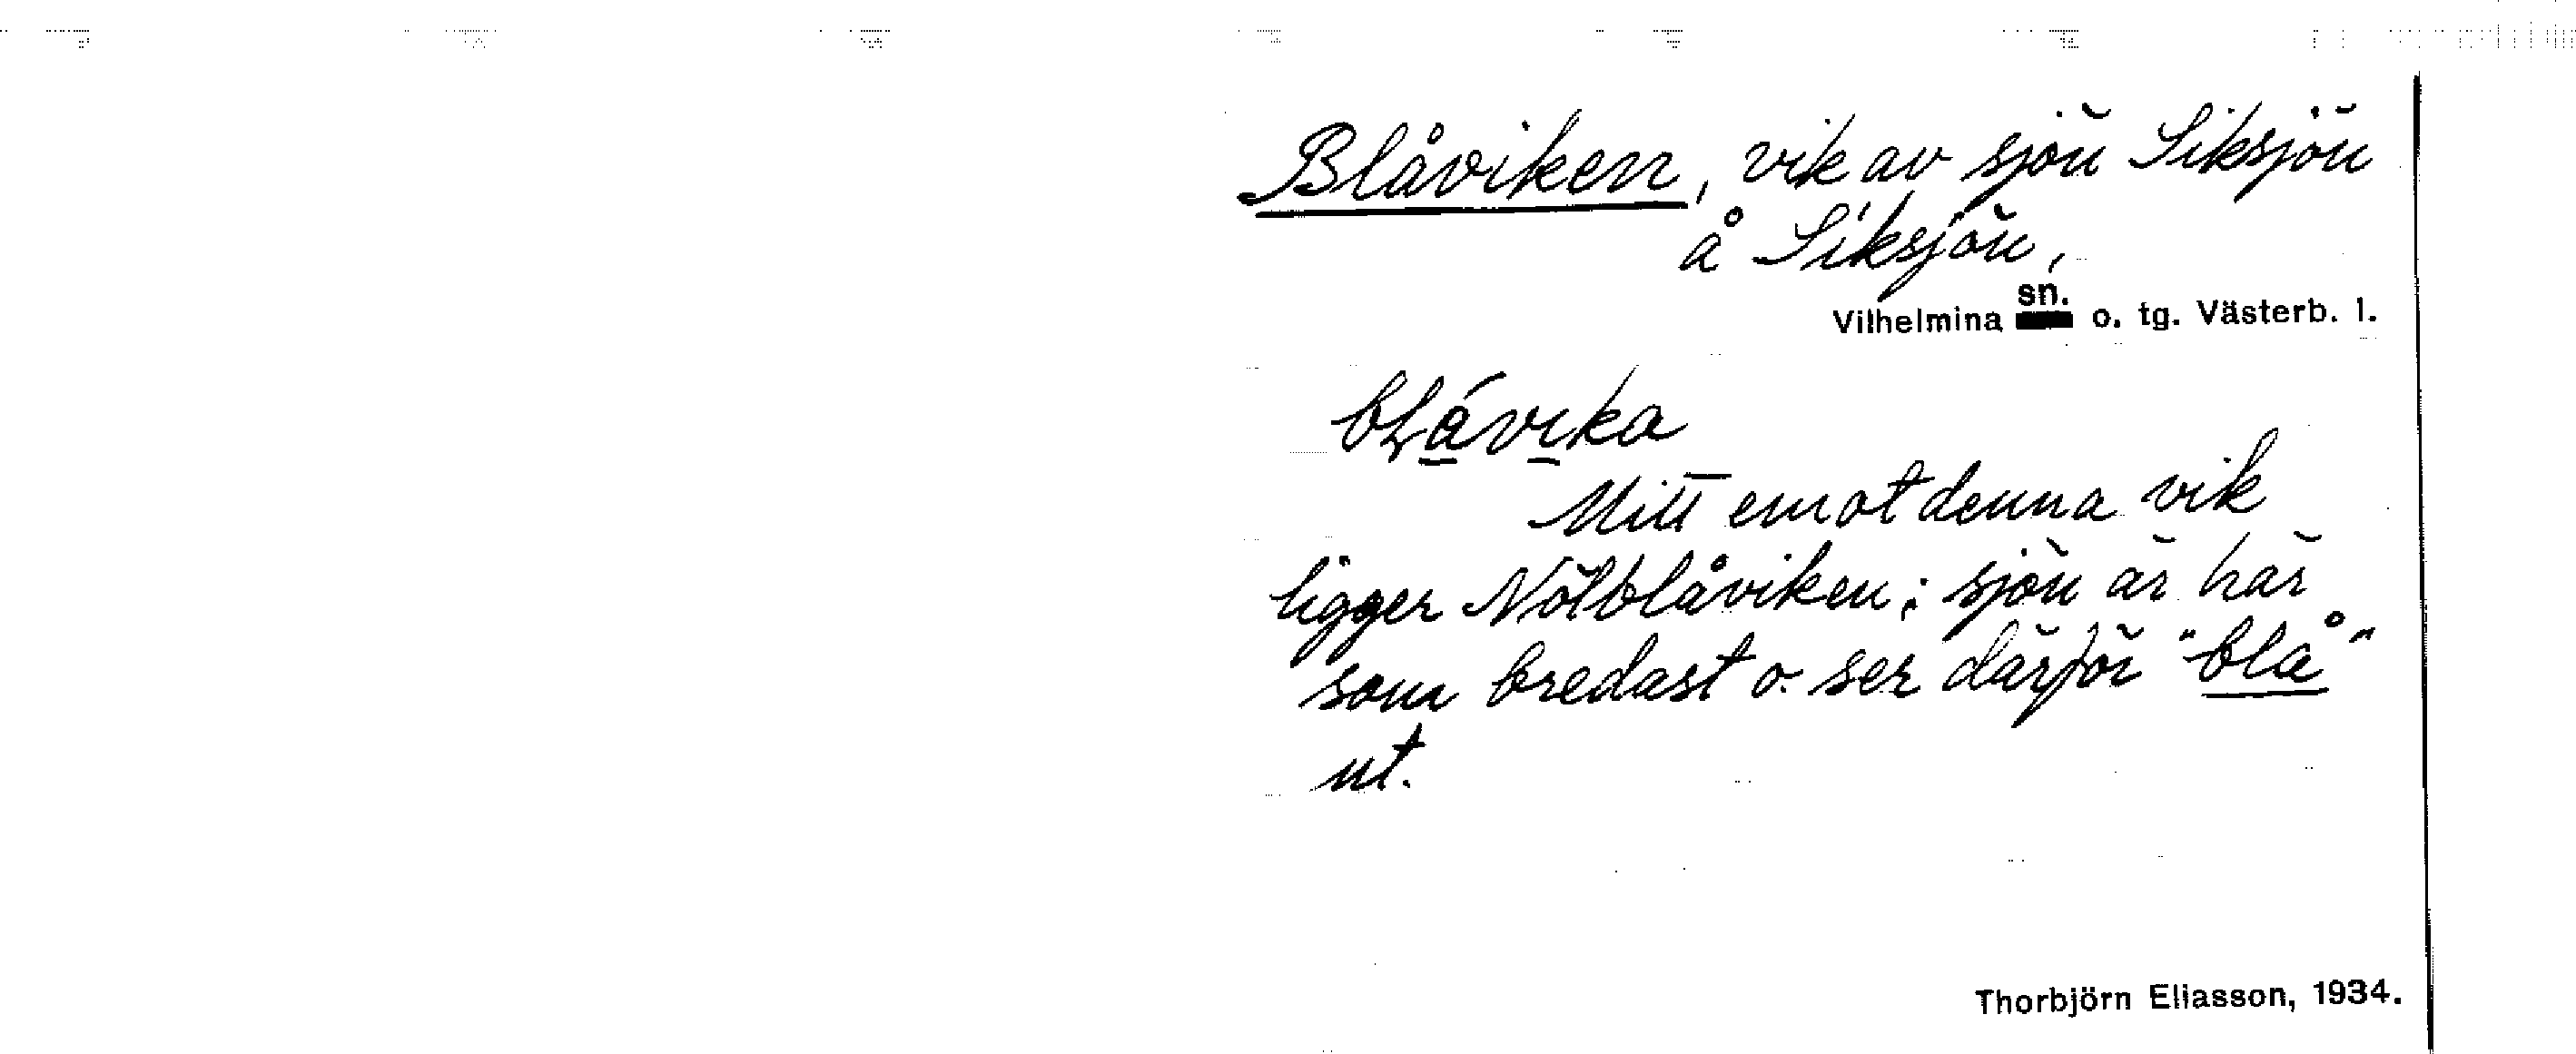 Blåviken, vik av sjön Siksjön
å Siksjön,
Vilhelmina sn. o. tg. Västerb. l.
bḷávika
Mitt emot denna vik
ligger Nölblåviken; sjön är här
som bredast o. ser därför "blå"
ut.
Thorbjörn Eliasson, 1934.